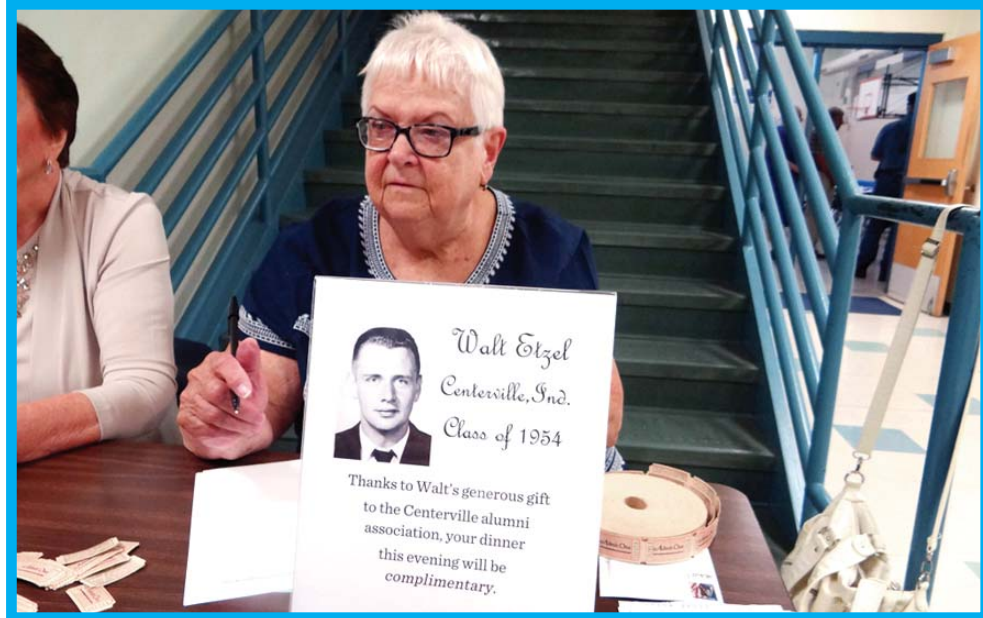 Walt Etzel
Centerville, Ind.
Class of 1954
Thanks to Walt's generous gift
to the Centerville alumni
association, your dinner
this evening will be
complimentary.
Admit One